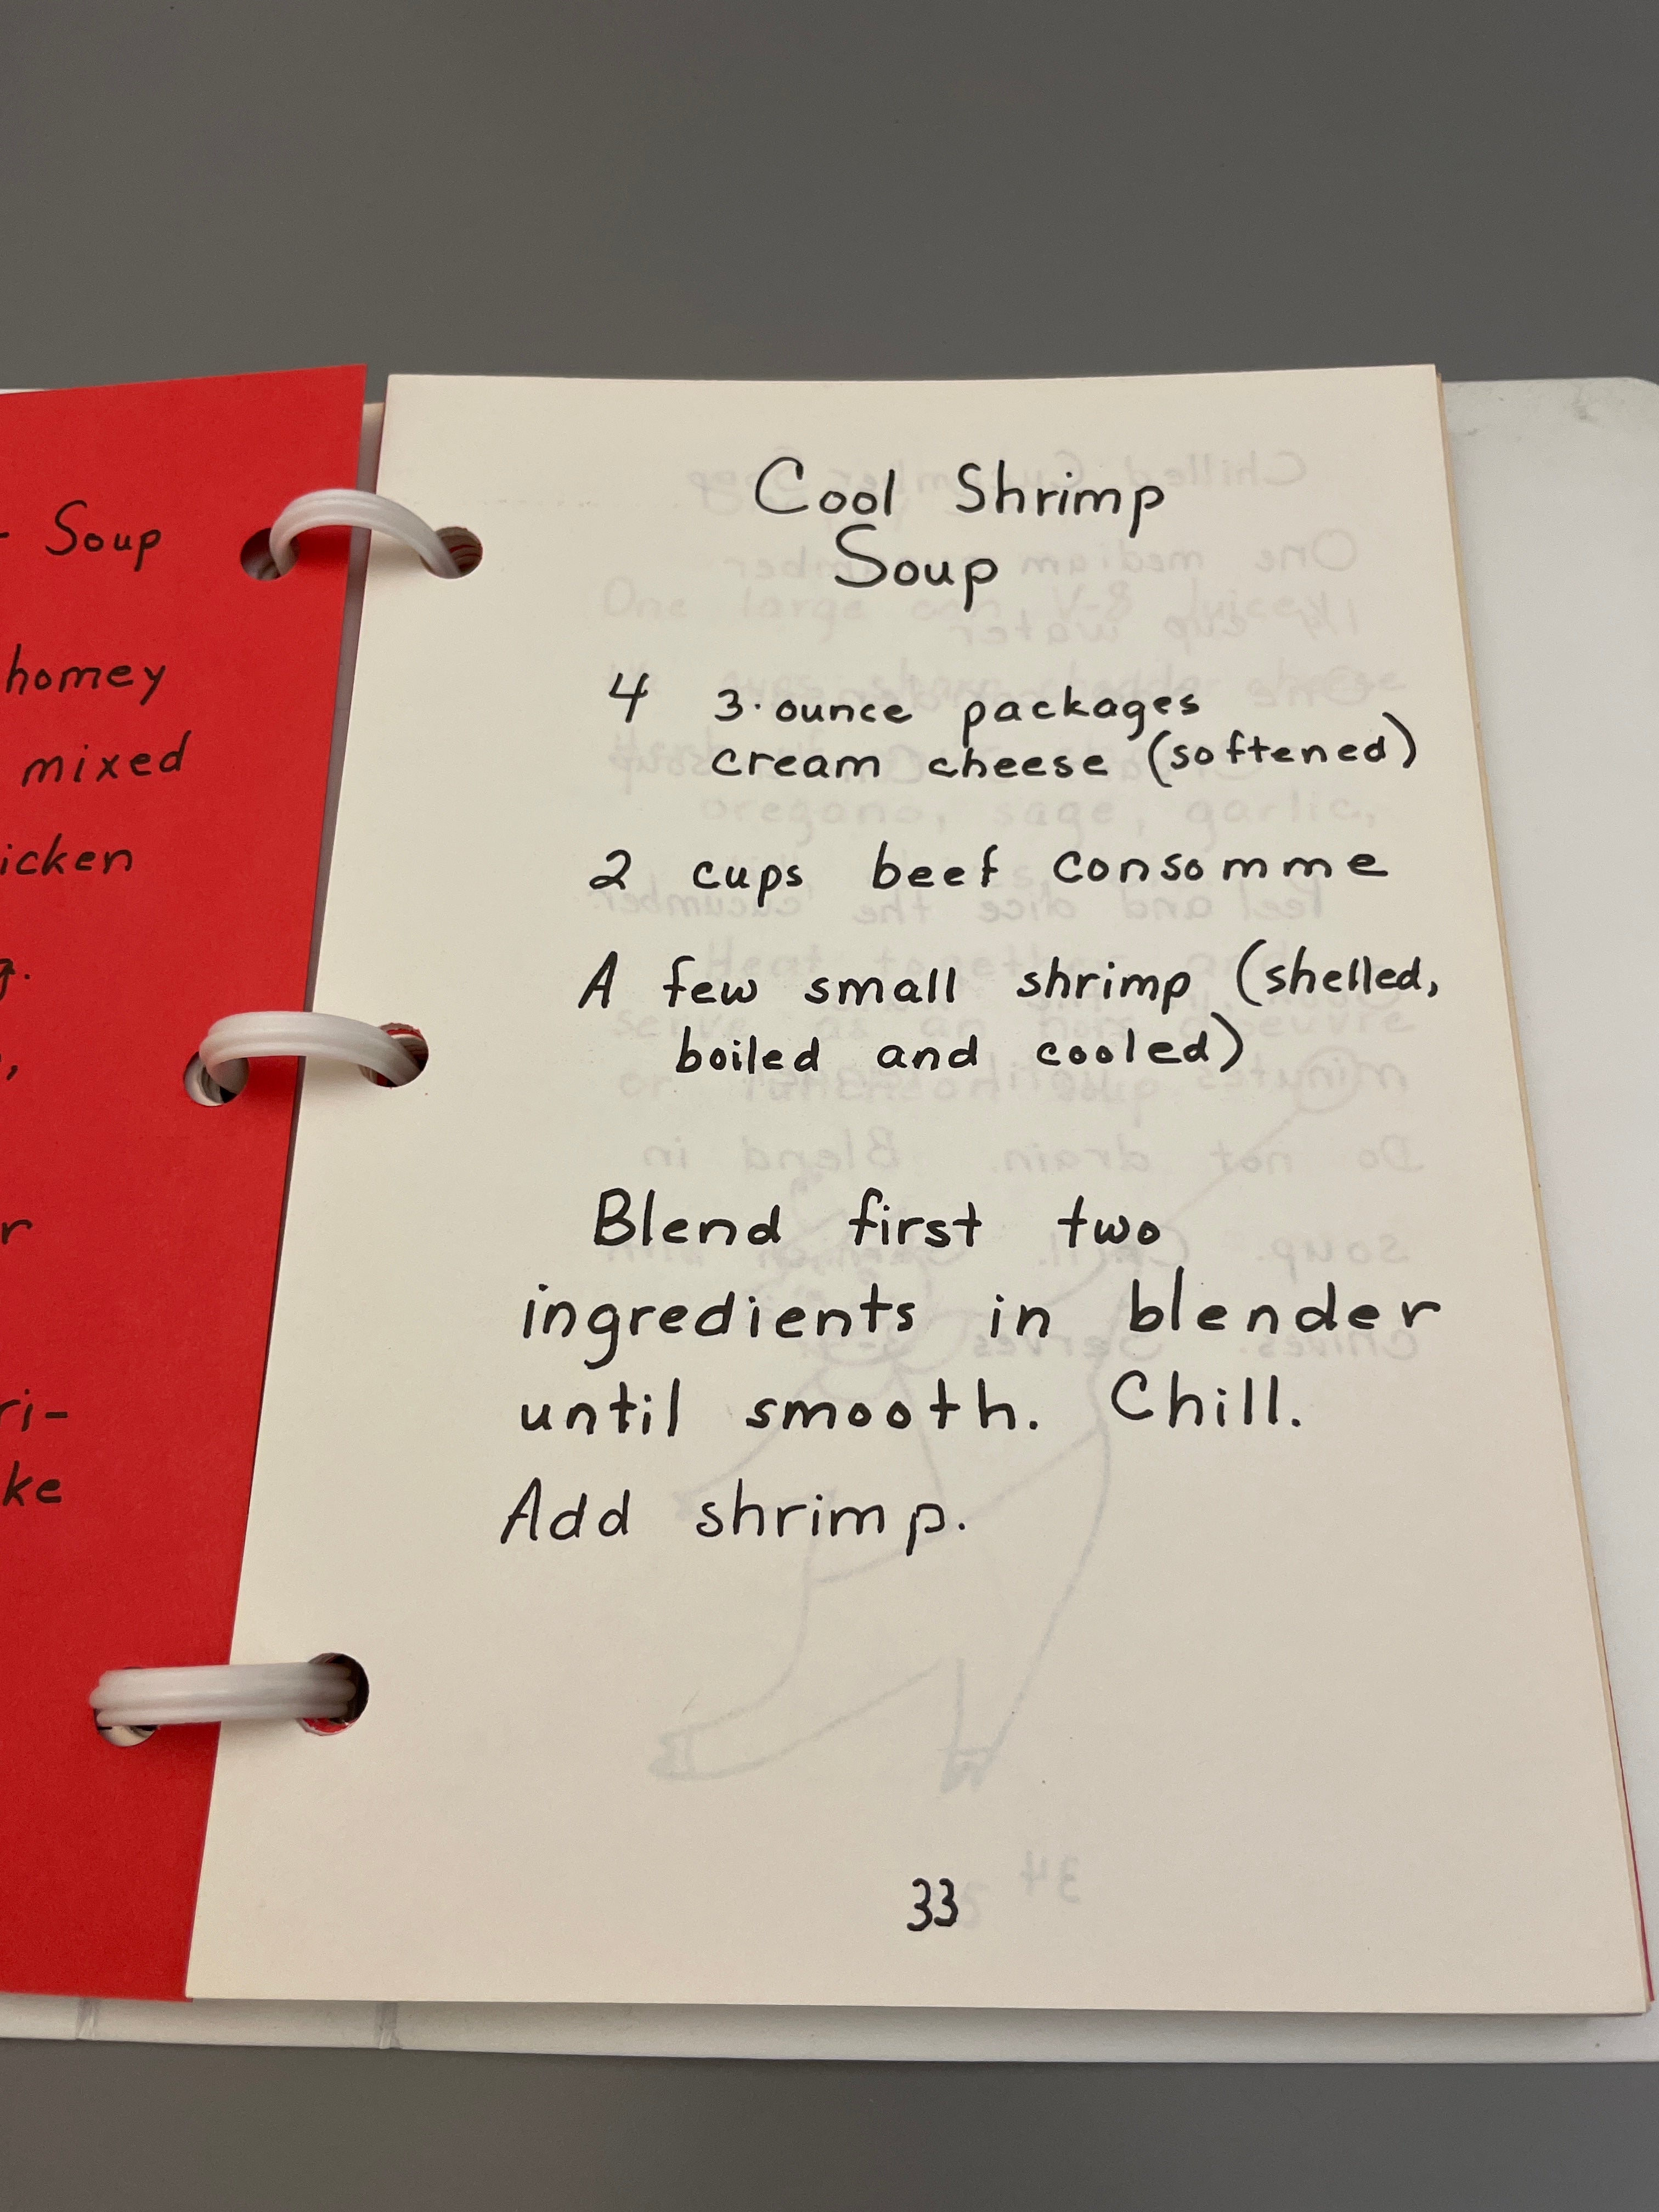 - Soup
homey
mixed
icken
g.
,
r
ri-
ke
Cool Shrimp
Soup
4 3-ounce packages
cream cheese (softened)
2 cups beef consomme
A few small shrimp (shelled,
boiled and cooled)
Blend first two
ingredients in blender
until smooth. Chill.
Add shrimp.
33